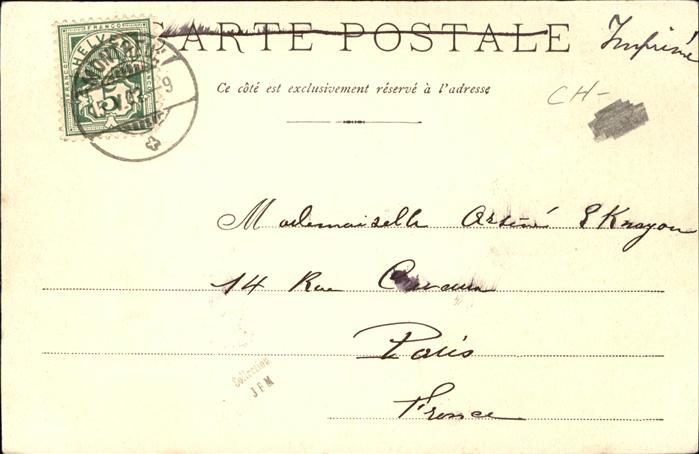 CARTE POSTALE
Imprimé
Ce côté est exclusivement réservé à l'adresse
CH-
FRANCO
HELVETIA
FRANCO
5
Mademoiselle
14 Rue
Paris
France
Collection
JFM